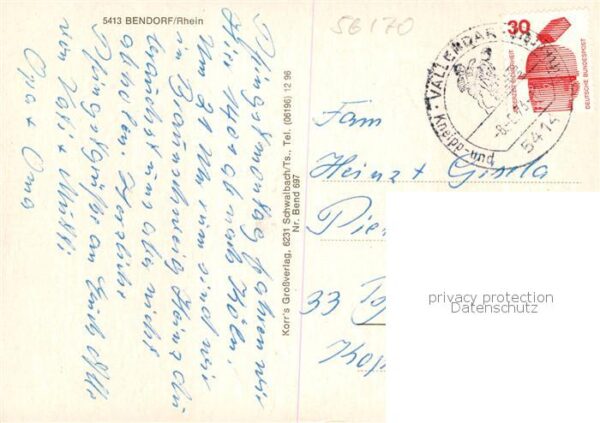 5413 BENDORF/Rhein
56170
Pfingstmontag fahren wir
hier 1401 ab nach Köln.
Um 21 Uhr sind wir
in Braunschweig Heinz du
brauchst uns aber nicht
abholen. Herzliche
Pfingstgrüße an Euch alle
von Vati + Mutti
Opa + Oma
Korr's Großverlag, 6231 Schwalbach/Ts., Tel. (06196) 12 96
Nr. Bend 697
VALLENDAR
Kneipp- und
5414
30
DEUTSCHE BUNDESPOST
Fam
Heinz + Gisela
33
privacy protection
Datenschutz